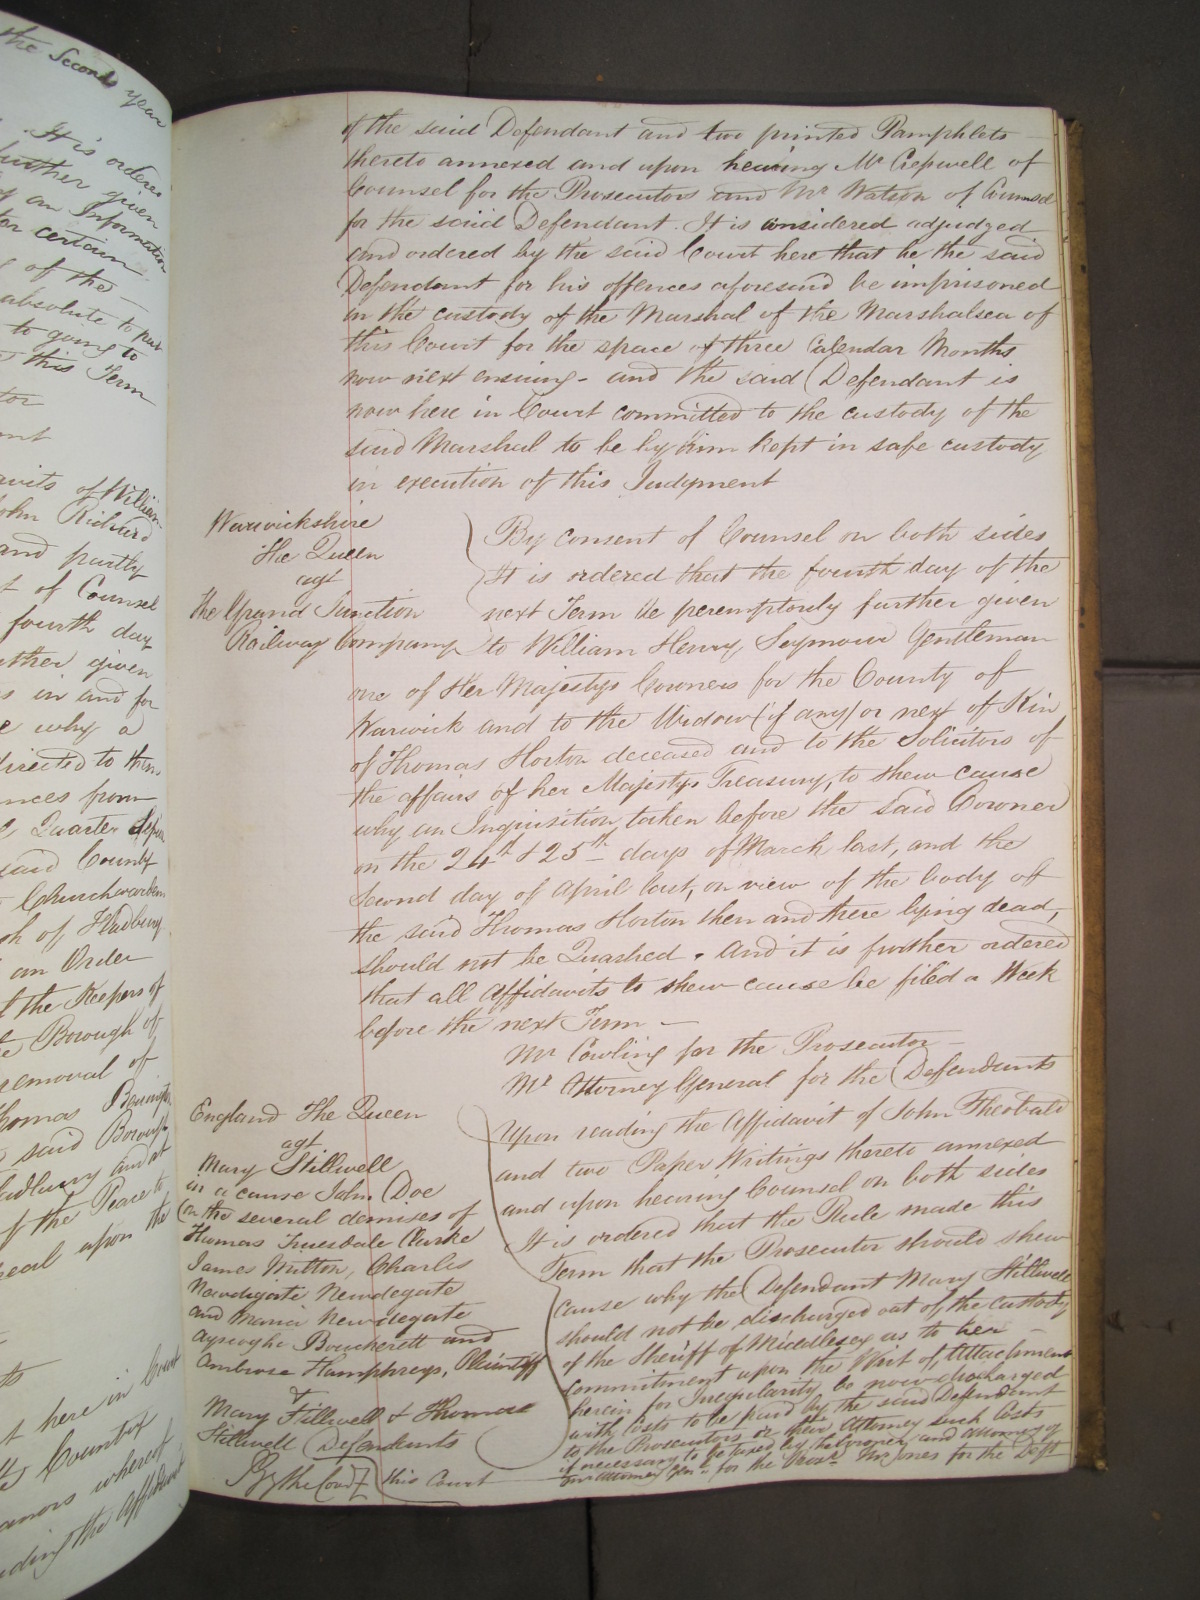 the Second year
It is ordered
further given
an Information
certain
of the
absolute to put
to going to
this Term
of William
John Richard
and partly
of Counsel
fourth day
given
in and for
why a
directed to
from
Quarter
said County
of Sudbury
an Order
the Keepers of
Borough of
removal of
Thomas
said Borough
Sudbury and at
of the Peace to
upon the
here in Court
County
whereof
the Affidavit
of the said Defendant and two printed Pamphlets
thereto annexed and upon hearing Mr Crepwell of
Counsel for the Prosecutors and Mr Watson of Counsel
for the said Defendant. It is considered adjudged
and ordered by the said Court here that he the said
Defendant for his offences aforesaid be imprisoned
in the custody of the Marshal of the Marshalsea of
this Court for the space of three Calendar Months
now next ensuing - and the said Defendant is
now here in Court committed to the custody of the
said Marshal to be by him kept in safe custody
in execution of this Judgment
Warwickshire
The Queen
agt
The Grand Junction
Railway Company
By consent of Counsel on both sides
It is ordered that the fourth day of the
next Term be peremptorily further given
to William Henry Seymour Gentleman
one of Her Majestys Coroners for the County of
Warwick and to the Widow (if any) or next of Kin
of Thomas Horton deceased and to the Solicitors of
the affairs of her Majestys Treasury, to shew cause
why an Inquisition taken before the said Coroner
on the 24th & 25th days of March last, and the
Second day of April last, on view of the body of
the said Thomas Horton then and there lying dead,
should not be Quashed. And it is further ordered
that all Affidavits to shew cause be filed a Week
before the next Term -
Mr Cowling for the Prosecutor
Mr Attorney General for the Defendants
England The Queen
agt
Mary Stillwell
in a cause John Doe
(on the several demises of
Thomas Truesdale Clarke
James Mitton, Charles
Newdigate Newdegate
and Maria Newdegate
Ayscoghe Boucherett and
Ambrose Humphreys, Plaintiff
&
Mary Stillwell & Thomas
Stillwell Defendants
Upon reading the Affidavit of John Theobald
and two Paper Writings thereto annexed
and upon hearing Counsel on both sides
It is ordered that the Rule made this
Term that the Prosecutor should shew
cause why the Defendant Mary Stillwell
should not be discharged out of the custody
of the Sheriff of Middlesex as to her
commitment upon the Writ of Attachment
herein for Irregularity be now discharged
with Costs to be paid by the said Defendant
to the Prosecutors or their Attorney such Costs
if necessary to be taxed by the Coroner and Attorney of
this Court
Mr Attorney Genl. for the Prosrs Mr Jones for the Deft
By the Court